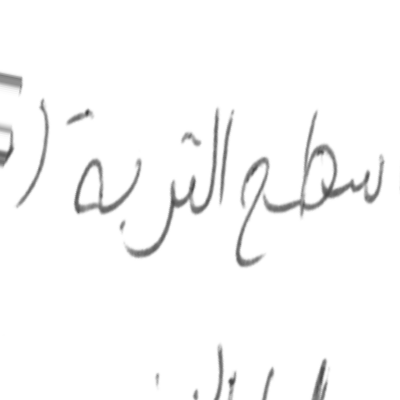 سطح التربة (